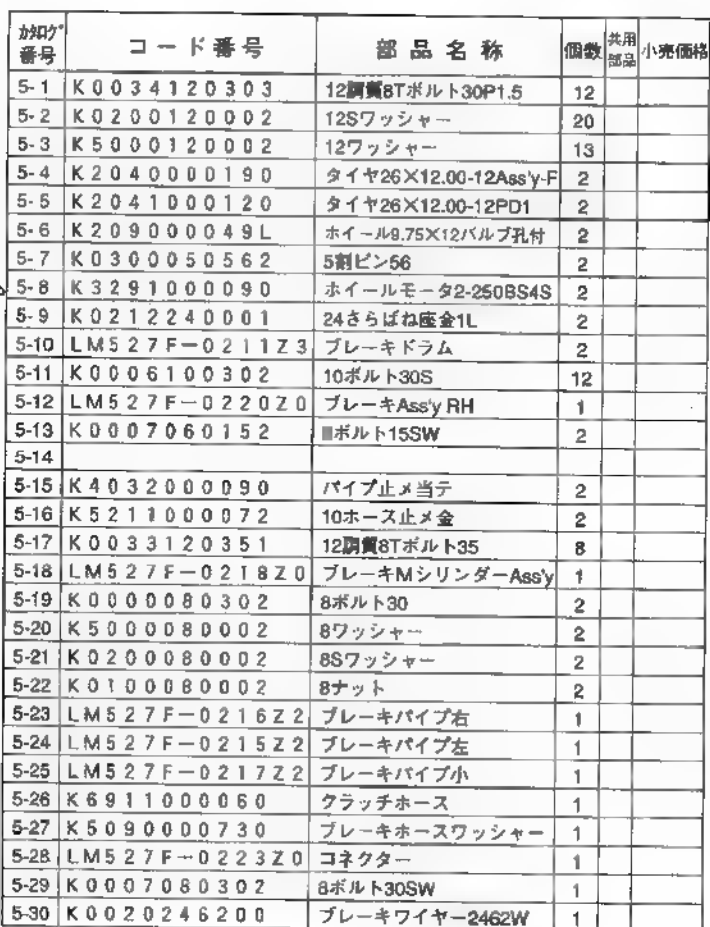 カタログ番号 コード番号 部品名称 個数 共用部品 小売価格
5-1 K0034120303 12調質8Tボルト30P1.5 12
5-2 K0200120002 12Sワッシャー 20
5-3 K5000120002 12ワッシャー 13
5-4 K2040000190 タイヤ26×12.00-12Ass'y-F 2
5-5 K2041000120 タイヤ26×12.00-12PD1 2
5-6 K209000049L ホイール9.75×12バルブ孔付 2
5-7 K0300050562 5割ピン56 2
5-8 K3291000090 ホイールモータ2-250BS4S 2
5-9 K0212240001 24さらばね座金1L 2
5-10 LM527F-0211Z3 ブレーキドラム 2
5-11 K0006100302 10ボルト30S 12
5-12 LM527F-0220Z0 ブレーキAss'y RH 1
5-13 K0007060152 ボルト15SW 2
5-14
5-15 K4032000090 パイプ止メ当テ 2
5-16 K5211000072 10ホース止メ金 2
5-17 K0033120351 12調質8Tボルト35 8
5-18 LM527F-0218Z0 ブレーキMシリンダーAss'y 1
5-19 K0000080302 8ボルト30 2
5-20 K5000080002 8ワッシャー 2
5-21 K0200080002 8Sワッシャー 2
5-22 K0100080002 8ナット 2
5-23 LM527F-0216Z2 ブレーキパイプ右 1
5-24 LM527F-0215Z2 ブレーキパイプ左 1
5-25 LM527F-0217Z2 ブレーキパイプ小 1
5-26 K6911000060 クラッチホース 1
5-27 K5090000730 ブレーキホースワッシャー 1
5-28 LM527F-0223Z0 コネクター 1
5-29 K0007080302 8ボルト30SW 1
5-30 K0020246200 ブレーキワイヤー2462W 1